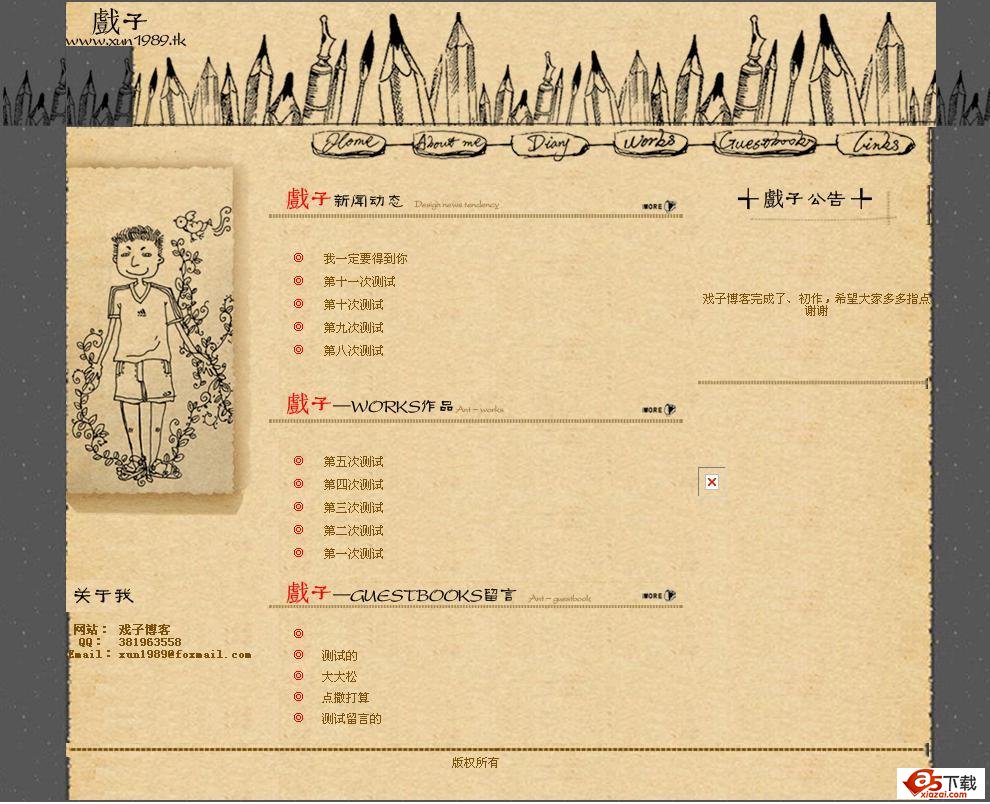 戲子
www.xun1989.tk
Home About me Diary Works Guestbooks Links
戲子新闻动态 Design news tendency MORE
我一定要得到你
第十一次测试
第十次测试
第九次测试
第八次测试
戲子—WORKS作品 Ant - works MORE
第五次测试
第四次测试
第三次测试
第二次测试
第一次测试
戲子—GUESTBOOKS留言 Ant - guestbook MORE
测试的
大大松
点撒打算
测试留言的
戲子公告
戏子博客完成了、初作，希望大家多多指点
谢谢
关于我
网站： 戏子博客
QQ： 381963558
Email：xun1989@foxmail.com
版权所有
a5下载
xiazai.com